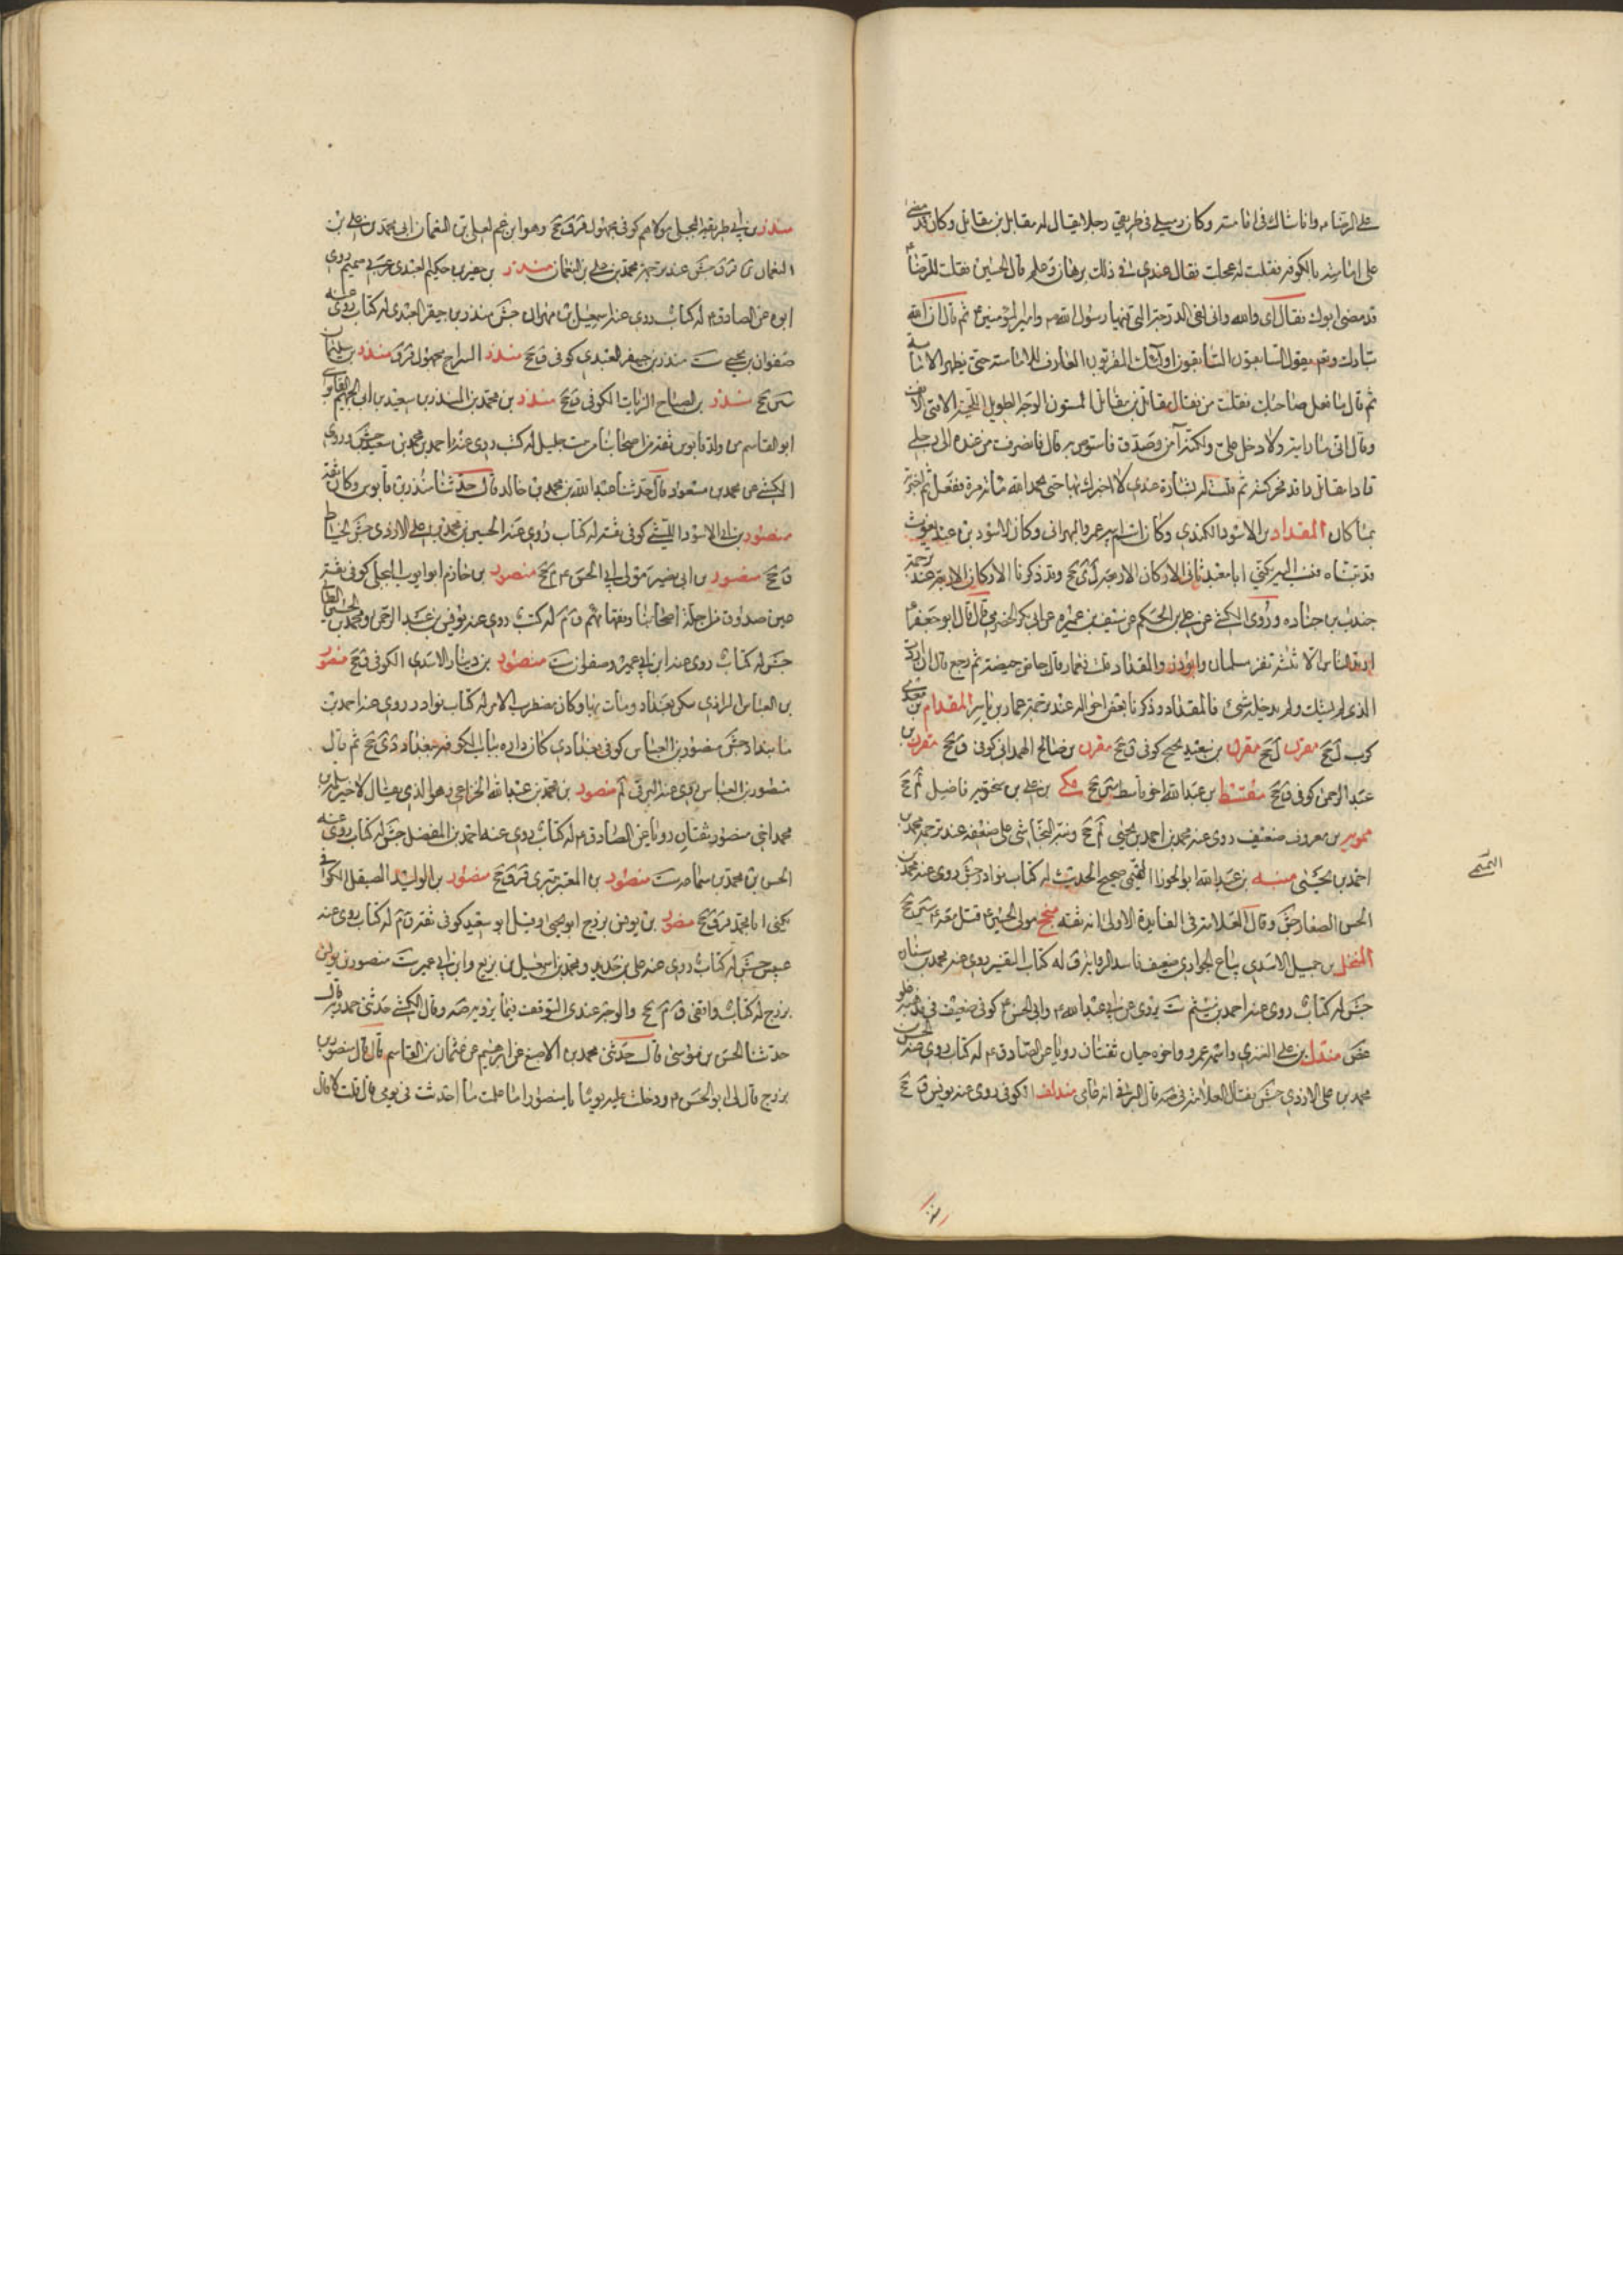 على الرضا ء وانا شاك في امامته وكان زميلي في طريقي رجلا يقال له مقاتل بن مقاتل وكان قد مضى
على امامته بالكوفة فقلت له عجلت فقال عندي في ذلك برهان وعلم قال الحسين فقلت للرضا ء
قد مضى ابوك فقال اى والله وانى لفى الدرجة التى فيها رسول الله ص وامير المؤمنين ء ثم قال ان الله
تبارك وتعم يقول السابقون السابقون اولئك المقربون العارف للامامة حتى يظهر الامام
ثم قال ما فعل صاحبك فقلت من يقال مقاتل بن مقاتل المسنون الوجه الطويل اللحية الاقنى الانف
وقال انى ما رايته ولا دخل على ولكنه آمن وصدق فاستوص به قال فانصرفت من عنده الى رحلى
فاذا مقاتل راقد فحركته ثم قلت له لك بشارة عندى لا اخبرك بها حتى تحمد الله مائة مرة ففعل ثم اخبرته
بما كان المقداد بن الاسود الكندى وكان اسم ابيه عمرو البهرانى وكان الاسود بن عبد يغوث
قد تبناه فنسب اليه يكنى ابا معبد ثانى الاركان الاربعة ل ى جخ وقد ذكرنا الاركان الاربعة عند ترجمة
جندب بن جناده وروى الكشى عن على بن الحكم عن سيف بن عميره عن ابى بكر الحضرمى قال قال ابو جعفر ء
ارتد الناس الا ثلثة نفر سلمان وابوذر والمقداد قلت فعمار قال جاض جيضة ثم رجع قال ان اردت
الذى لم يشك ولم يدخله شئ فالمقداد وذكرنا بعض احواله عند ترجمة عمار بن ياسر المقدام بن معدى
كرب ل جخ مقرن ل جخ مقرن بن سعيد صحيح كوفى ق جخ مقرن بن صالح الهمدانى كوفى ق جخ مقرن بن
عبد الرحمن كوفى ق جخ مقسط بن عبد الله اخو قاسط سين جخ مكى بن على بن سختويه فاضل لم جخ
ممويه بن معروف ضعيف روى عنه محمد بن احمد بن يحيى لم جخ ونبه النجاشى على ضعفه عند ترجمة محمد بن
احمد بن يحيى منبه بن عبد الله ابو الجوزا التميمى صحيح الحديث له كتاب نوادر جش روى عنه محمد بن
الحسن الصفار جش وقال العلامة فى الفايدة الاولى انه ثقة منجح مولى الحسين ء قتل معه ء سين جخ
المنخل بن جميل الاسدى بياع الجوارى ضعيف فاسد الرواية ق له كتاب التفسير روى عنه محمد بن سنان
جش له كتاب روى عنه احمد بن ميثم ست يروى عن ابى عبد الله ء وابى الحسن ء كوفى ضعيف فى مذهبه غلو
غض مندل بن على العنزى واسمه عمرو واخوه حيان ثقتان رويا عن الصادق ء له كتاب روى عنه الحسن بن
محمد بن على الازدى جش فقال العلامة فى صه قال البرقى انه عامى مندلف الكوفى روى عنه يونس ق جخ
التميمى
منذر بن ابى طريفة البجلى مولاهم كوفى مجهول قر ق جخ وهو ابن عم لعلى بن النعمان ابى محمد بن على بن
النعمان جش عند ترجمة محمد بن على بن النعمان منذر بن جفير بن حكيم العبدى عربى صميم روى
ابوه عن الصادق ء له كتاب روى عنه اسمعيل بن مهران جش منذر بن جيفر العبدى له كتاب روى عنه
صفوان بن يحيى ست منذر بن جيفر العبدى كوفى ق جخ منذر السراج مجهول قر ق منذر بن سليمان
سين جخ منذر بن الصباح الزيات الكوفى ق جخ منذر بن محمد بن المنذر بن سعيد بن ابى الجهم القابوسى
ابو القاسم من ولد قابوس ثقة من اصحابنا من بيت جليل له كتب روى عنه احمد بن محمد بن سعيد جش وروى
الكشى عن محمد بن مسعود قال حدثنا عبد الله بن محمد بن خالد قال حدثنا منذر بن قابوس وكان ثقة
منصور بن ابى الاسود الليثى كوفى ثقة له كتاب روى عنه الحسين بن محمد بن على الازدى جش الخياط
ق جخ منصور بن ابى بصير مولى ابى الحسن ء م جخ منصور بن حازم ابو ايوب البجلى كوفى ثقة
عين صدوق من اجلة اصحابنا وفقهائهم ق م له كتب روى عنه يونس بن عبد الرحمن ومحمد بن الحسين الطائى
جش له كتاب روى عنه ابن ابى عمير وصفوان ست منصور بن دينار الاسدى الكوفى ق جخ منصور
بن العباس الرازى سكن بغداد ومات بها وكان مضطرب الامر له كتاب نوادر روى عنه احمد بن
مابنداد جش منصور بن العباس كوفى بغدادى كان داره بباب الكوفة ببغداد د ى جخ ثم قال
منصور بن العباس روى عنه البرقى لم منصور بن محمد بن عبد الله الخزاعى وهو الذى يقال لاخيه سلمة بن
محمد اخى منصور ثقتان رويا عن الصادق ء له كتاب روى عنه احمد بن المفضل جش له كتاب روى عنه
الحسن بن محمد بن سماعه ست منصور بن المعتمر بترى قر ق جخ منصور بن الوليد الصيقل الكوفى
يكنى ابا محمد قر ق جخ منصور بن يونس بزرج ابو يحيى وقيل ابو سعيد كوفى ثقة ق م له كتاب روى عنه
عبيس جش له كتاب روى عنه على بن حديد ومحمد بن اسمعيل بن بزيع وابن ابى عمير ست منصور بن يونس
بزرج له كتاب واقفى ق م جخ والوجه عندى التوقف فيما يرويه صه وقال الكشى حدثنى حمدويه قال
حدثنا الحسن بن موسى قال حدثنى محمد بن الاصبغ عن ابرهيم عن عثمان بن القاسم قال قال منصور بن
بزرج قال لى ابو الحسن ء ودخلت عليه يوما يا منصور اما علمت ما احدثت فى يومى قال قلت لا قال